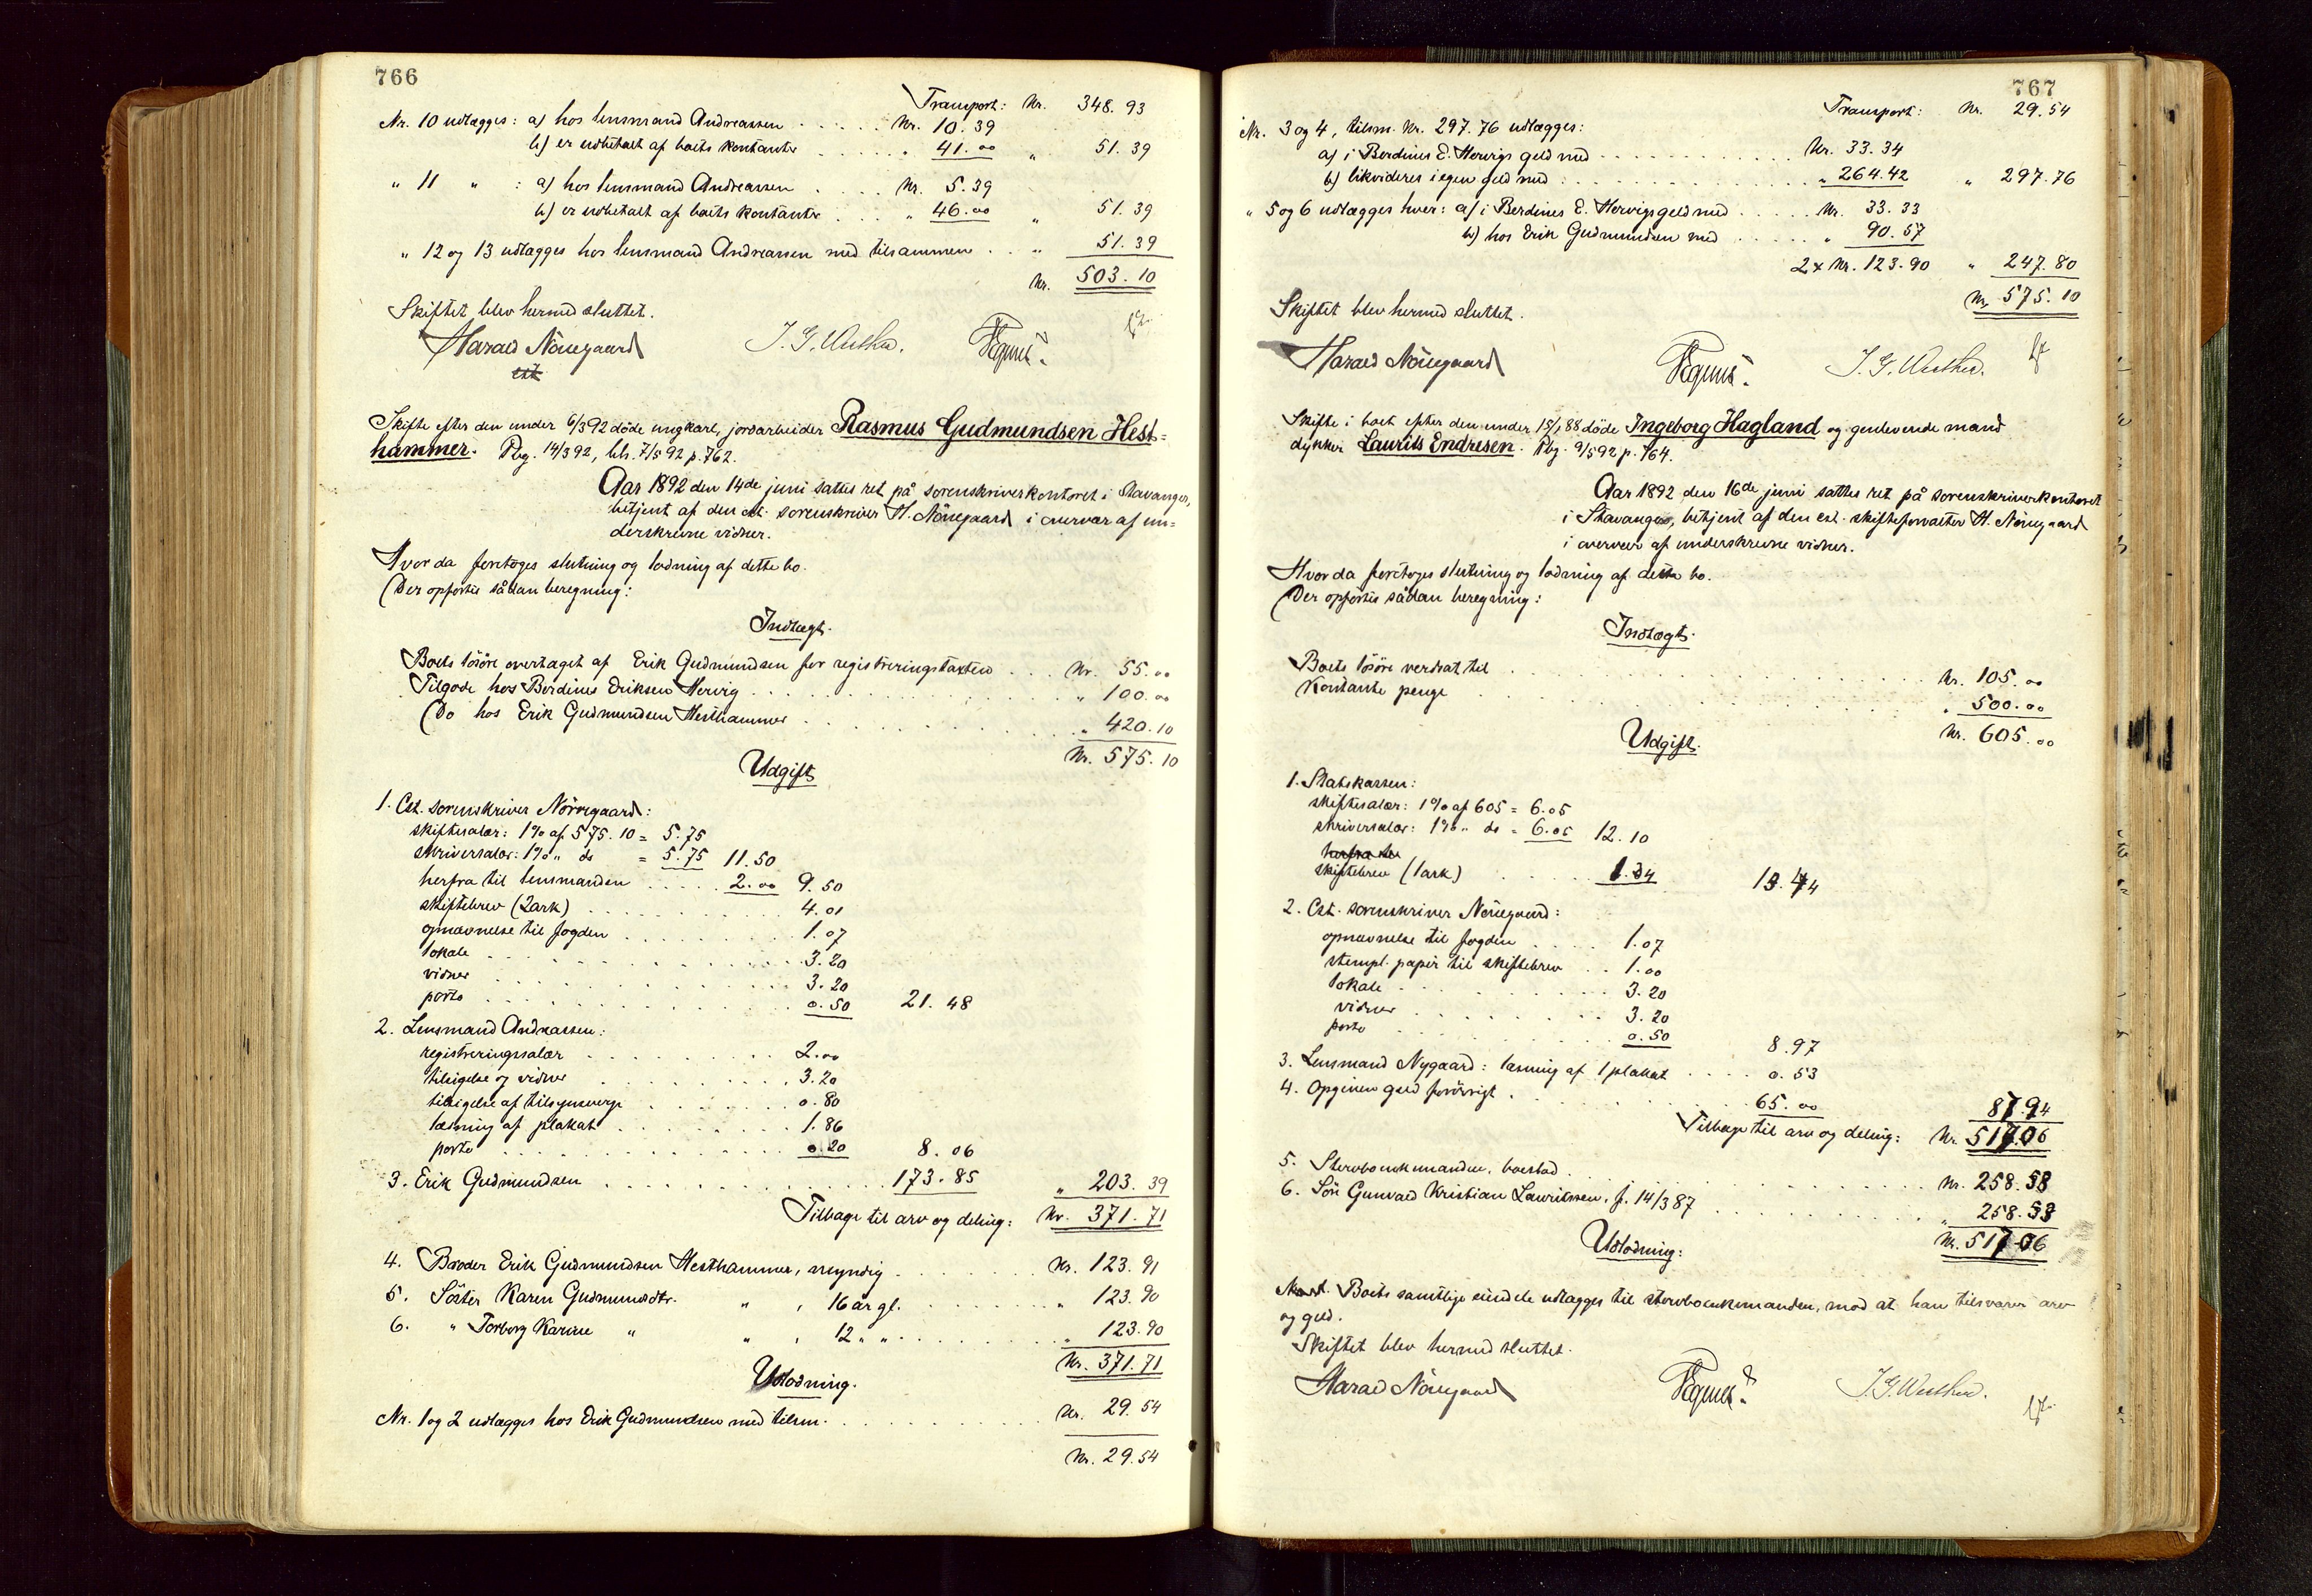 766
Transport: Kr. 348.93
Nr. 10 udlægges: a) hos lensmand Andreassen ..... Kr. 10.39
b) er udbetalt af boets kontanter ...... " 41.00 " 51.39
" 11 " : a) hos lensmand Andreassen .... Kr. 5.39
b) er udbetalt af boets kontanter ... " 46.00 " 51.39
" 12 og 13 udlægges hos lensmand Andreassen med tilsammen .. " 51.39
Kr. 503.10
Skiftet blev hermed sluttet.
Harald Nörregaard
cst.
Skifte efter den under 6/3 92 döde ungkarl, jordarbeider Rasmus Gudmundsen Hest=
hammer. Pbg. 14/3 92, beh. 7/5 92 p. 762.
Aar 1892 den 14de juni sattes ret på sorenskriverkontoret i Stavanger,
betjent af den cst. sorenskriver H. Nörregaard i overvær af un=
derskrevne vidner.
Hvor da foretoges slutning og lodning af dette bo.
Der opförtes sådan beregning:
Indtægt.
Boets lösöre overtaget af Erik Gudmundsen for registreringstaxten .. Kr. 55.00
Tilgode hos Berdines Eriksen Hervig .......... " 100.00
Do hos Erik Gudmundsen Hesthammer .......... " 420.10
Kr. 575.10
Udgift
1. Cst. sorenskriver Nörregaard:
skiftesalær: 1% af 575.10 = 5.75
skriversalær: 1% " do = 5.75 11.50
herfra til lensmanden .... 2.00 9.50
skiftebrev (2 ark) ......... 4.01
opnævnelse til fogden ........ 1.07
lokale ........... 3.20
vidner ........... 3.20
porto ........... 0.50 21.48
2. Lensmand Andreassen:
registreringssalær ........ 2.00
tilsigelse og vidner ........ 3.20
tilsigelse af tilsynsverge ...... 0.80
læsning af plakat ........ 1.86
porto ........... 0.20 8.06
3. Erik Gudmundsen ............. 173.85 " 203.39
Tilbage til arv og deling: Kr. 371.71
4. Broder Erik Gudmundsen Hesthammer, myndig ...... Kr. 123.91
5. Söster Karen Gudmundsdtr. " , 16 år gl. ....... " 123.90
6. " Torborg Karine " " , 12 " " ........ " 123.90
Kr. 371.71
Udlodning.
Nr. 1 og 2 udlægges hos Erik Gudmundsen med tilsm. ......... Kr. 29.54
Kr. 29.54
767
Transport: Kr. 29.54
Nr. 3 og 4, tilsm. Kr. 297.76 udlægges:
a) i Berdines E. Hervigs gjeld med ............ Kr. 33.34
b) likvideres i egen gjeld med : .............. " 264.42 " 297.76
" 5 og 6 udlægges hver: a) i Berdines E. Hervigs gjeld med ..... Kr. 33.33
b) hos Erik Gudmundsen med ..... " 90.57
2 x Kr. 123.90 " 247.80
Kr. 575.10
Skiftet blev hermed sluttet.
Harald Nörregaard
Skifte i boet efter den under 15/1 88 döde Ingeborg Hagland og gjenlevende mand
dykker Laurits Endresen. Pbg. 9/5 92 p. 764.
Aar 1892 den 16de juni sattes ret på sorenskriverkontoret
i Stavanger, betjent af den cst. skifteforvalter H. Nörregaard
i overvær af underskrevne vidner.
Hvor da foretoges slutning og lodning af dette bo.
Der opförtes sådan beregning:
Indtægt.
Boets lösöre verdsat til ............... Kr. 105.00
Kontante penge ............... " 500.00
Kr. 605.00
Udgift.
1. Statskassen:
skiftesalær: 1% af 605 = 6.05
skriversalær: 1% " do = 6.05 12.10
skiftebrev (1 ark) ..... 1.34 13.44
2. Cst. sorenskriver Nörregaard:
opnævnelse til fogden .... 1.07
stempl. papir til skiftebrev .. 1.00
lokale ......... 3.20
vidner ......... 3.20
porto ......... 0.50 8.97
3. Lensmand Nygaard: læsning af 1 plakat .... 0.53
4. Opgiven gjeld forövrigt ........... 65.00 87.94
Tilbage til arv og deling: Kr. 517.06
5. Stervboenkemanden, boeslod ............ Kr. 258.53
6. Sön Gunvald Kristian Lauritssen, f. 14/3 87 ........ " 258.53
Kr. 517.06
Udlodning:
Boets samtlige eiendele udlægges til stervboenkemanden, mod at han tilsvarer arv
og gjeld.
Skiftet blev hermed sluttet.
Harald Nörregaard